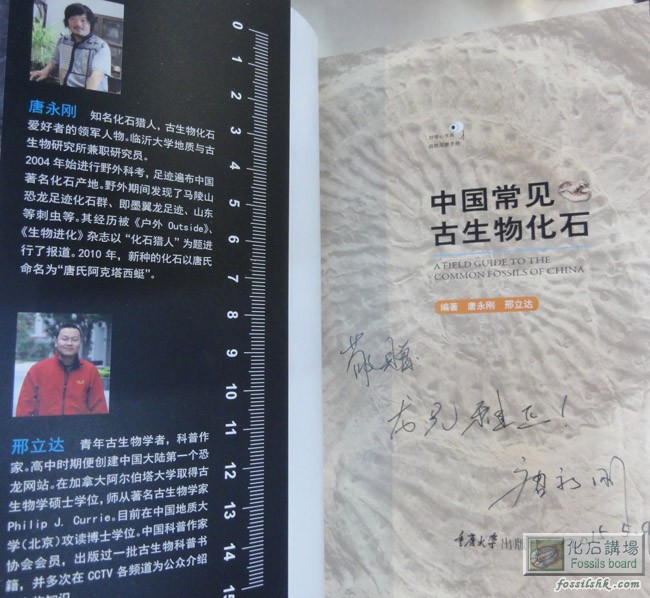 唐永刚 知名化石猎人，古生物化石
爱好者的领军人物。临沂大学地质与古
生物研究所兼职研究员。
2004年始进行野外科考，足迹遍布中国
著名化石产地。野外期间发现了马陵山
恐龙足迹化石群、即墨翼龙足迹、山东
等刺虫等。其经历被《户外 Outside》、
《生物进化》杂志以“化石猎人”为题进
行了报道。2010年，新种的化石以唐氏
命名为“唐氏阿克塔西蜓”。
邢立达 青年古生物学者，科普作
家。高中时期便创建中国大陆第一个恐
龙网站。在加拿大阿尔伯塔大学取得古
生物学硕士学位，师从著名古生物学家
Philip J. Currie。目前在中国地质大
学（北京）攻读博士学位。中国科普作家
协会会员，出版过一批古生物科普书
籍，并多次在 CCTV 各频道为公众介绍
0
1
2
3
4
5
6
7
8
9
10
11
12
13
14
15
好奇心书系
中国常见
古生物化石
A FIELD GUIDE TO THE
COMMON FOSSILS OF CHINA
编著 唐永刚 邢立达
敬赠
龙兄雅正！
唐永刚
15.5.9
重庆大学出版
化石講場
Fossils board
fossilshk.com